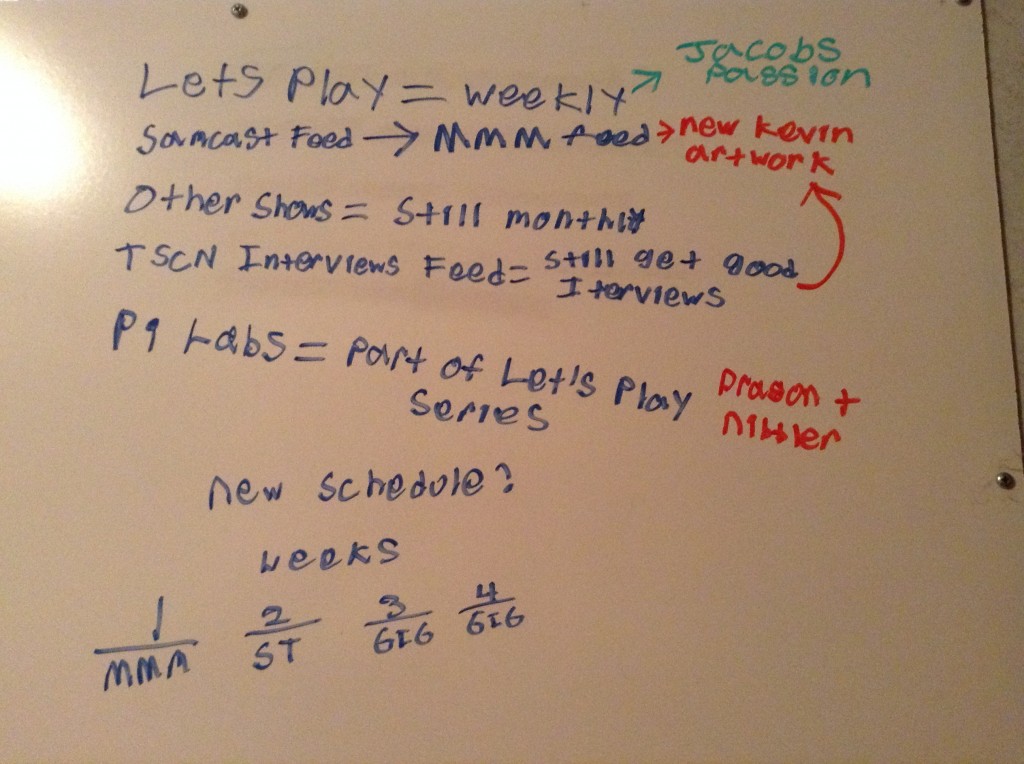 Lets Play = weekly → Jacobs
Passion
Samcast Feed → MMM feed → new Kevin
artwork
Other Shows = Still monthly
TSCN Interviews Feed = Still get good
Iterviews
P1 Labs = Part of Let's Play
Series
Dragon +
new schedule?
weeks
1 2 3 4
MMM ST GIG GIG